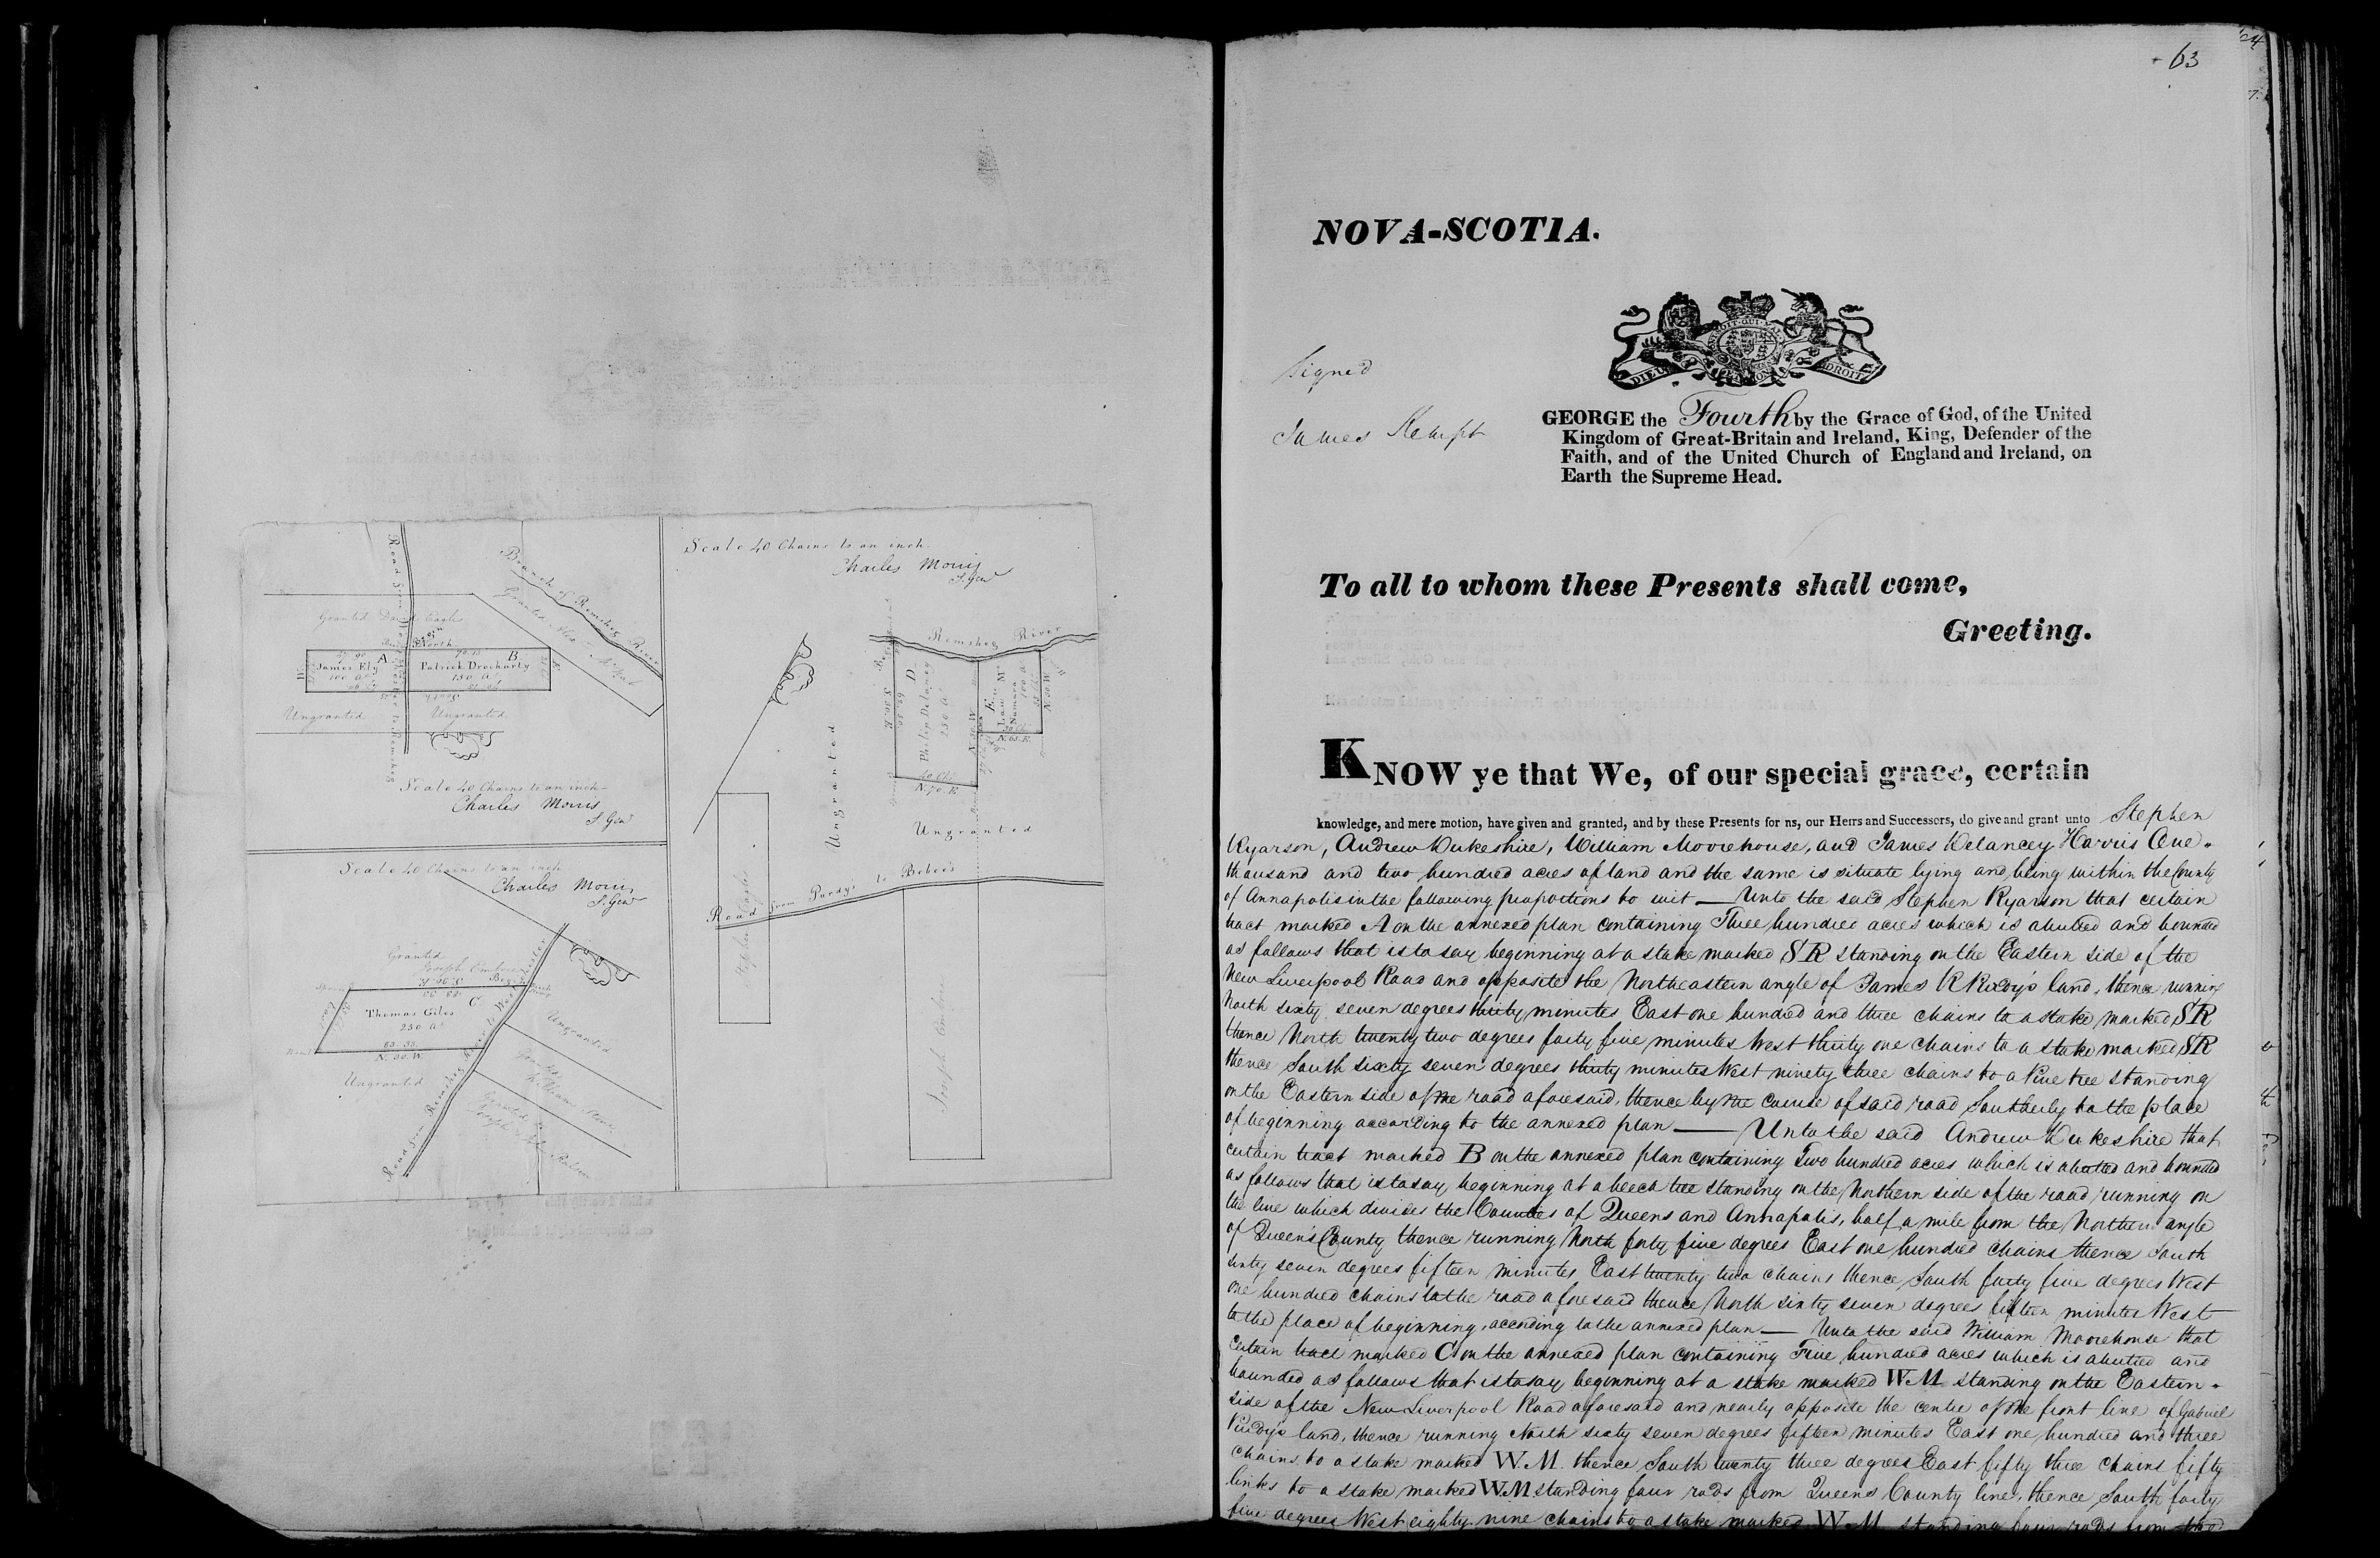 Scale 40 Chains to an inch.
Charles Morris
S. Genl
Branch of Remsheg River
Granted David Eagles
North
A
James Ely
100 As
B
Patrick Drocharty
150 As
South
Ungranted
Ungranted
Scale 40 Chains to an inch
Charles Morris
S. Genl
Remsheg River
D
Philip Delaney
250 As
S. 20. E.
N. 20 W
E
Law Mc
Namara
100 As
N. 20 W
N. 65. E.
40 Chs
N. 70. E.
Ungranted
Ungranted
Road from Purdy's to Bebee's
Scale 40 Chains to an inch
Charles Morris
S. Genl
Granted
C
Thomas Giles
250 As
83. 33.
N. 90. W.
Ungranted
Ungranted
Road from Remsheg River to Westchester
63
NOVA-SCOTIA.
DIEU ET MON DROIT
Signed
James Kempt
GEORGE the Fourth by the Grace of God, of the United
Kingdom of Great-Britain and Ireland, King, Defender of the
Faith, and of the United Church of England and Ireland, on
Earth the Supreme Head.
To all to whom these Presents shall come,
Greeting.
KNOW ye that We, of our special grace, certain
knowledge, and mere motion, have given and granted, and by these Presents for ns, our Herrs and Successors, do give and grant unto Stephen
Ryarson, Andrew Dukeshire, William Moorehouse, and James Delancey Harris One
thousand and two hundred acres of land and the same is situate lying and being within the County
of Annapolis in the following proportions to wit — Unto the said Stephen Ryarson that certain
tract marked A on the annexed plan containing Three hundred acres which is abutted and bounded
as follows that is to say beginning at a stake marked SR standing on the Eastern side of the
New Liverpool Road and opposite the Northeastern angle of James R Purdy's land, thence running
North sixty seven degrees thirty minutes East one hundred and three chains to a stake marked SR
thence North twenty two degrees forty five minutes West thirty one chains to a stake marked SR
thence South sixty seven degrees thirty minutes West ninety three chains to a Pine tree standing
on the Eastern side of the road aforesaid, thence by the course of said road Southerly to the place
of beginning according to the annexed plan — Unto the said Andrew Dukeshire that
certain tract marked B on the annexed plan containing Two hundred acres which is abutted and bounded
as follows that is to say beginning at a beech tree standing on the Northern side of the road running on
the line which divides the Counties of Queens and Annapolis, half a mile from the Northern angle
of Queen's County thence running North forty five degrees East one hundred chains thence South
sixty seven degrees fifteen minutes East twenty two chains thence South forty five degrees West
one hundred chains to the road aforesaid thence North sixty seven degrees fifteen minutes West
to the place of beginning, according to the annexed plan — Unto the said William Moorehouse that
certain tract marked C on the annexed plan containing Five hundred acres which is abutted and
bounded as follows that is to say beginning at a stake marked W.M standing on the Eastern
side of the New Liverpool Road aforesaid and nearly opposite the centre of the front line of Gabriel
Purdy's land, thence running North sixty seven degrees fifteen minutes East one hundred and three
chains to a stake marked W.M. thence South twenty three degrees East fifty three chains fifty
links to a stake marked W.M standing four rods from Queens County line, thence South forty
five degrees West eighty nine chains to a stake marked W M standing four rods from